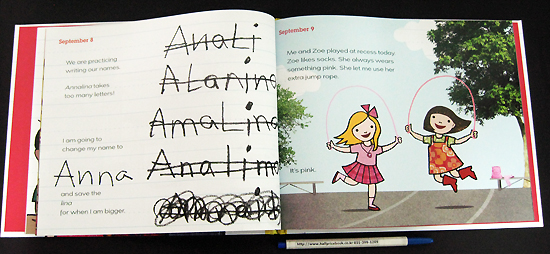 September 8
We are practicing
writing our names.
Annalina takes
too many letters!
I am going to
change my name to
Anna
and save the
lina
for when I am bigger.
AnaLi
ALanina
AmaLina
Analim
September 9
Me and Zoe played at recess today.
Zoe likes socks. She always wears
something pink. She let me use her
extra jump rope.
It's pink.